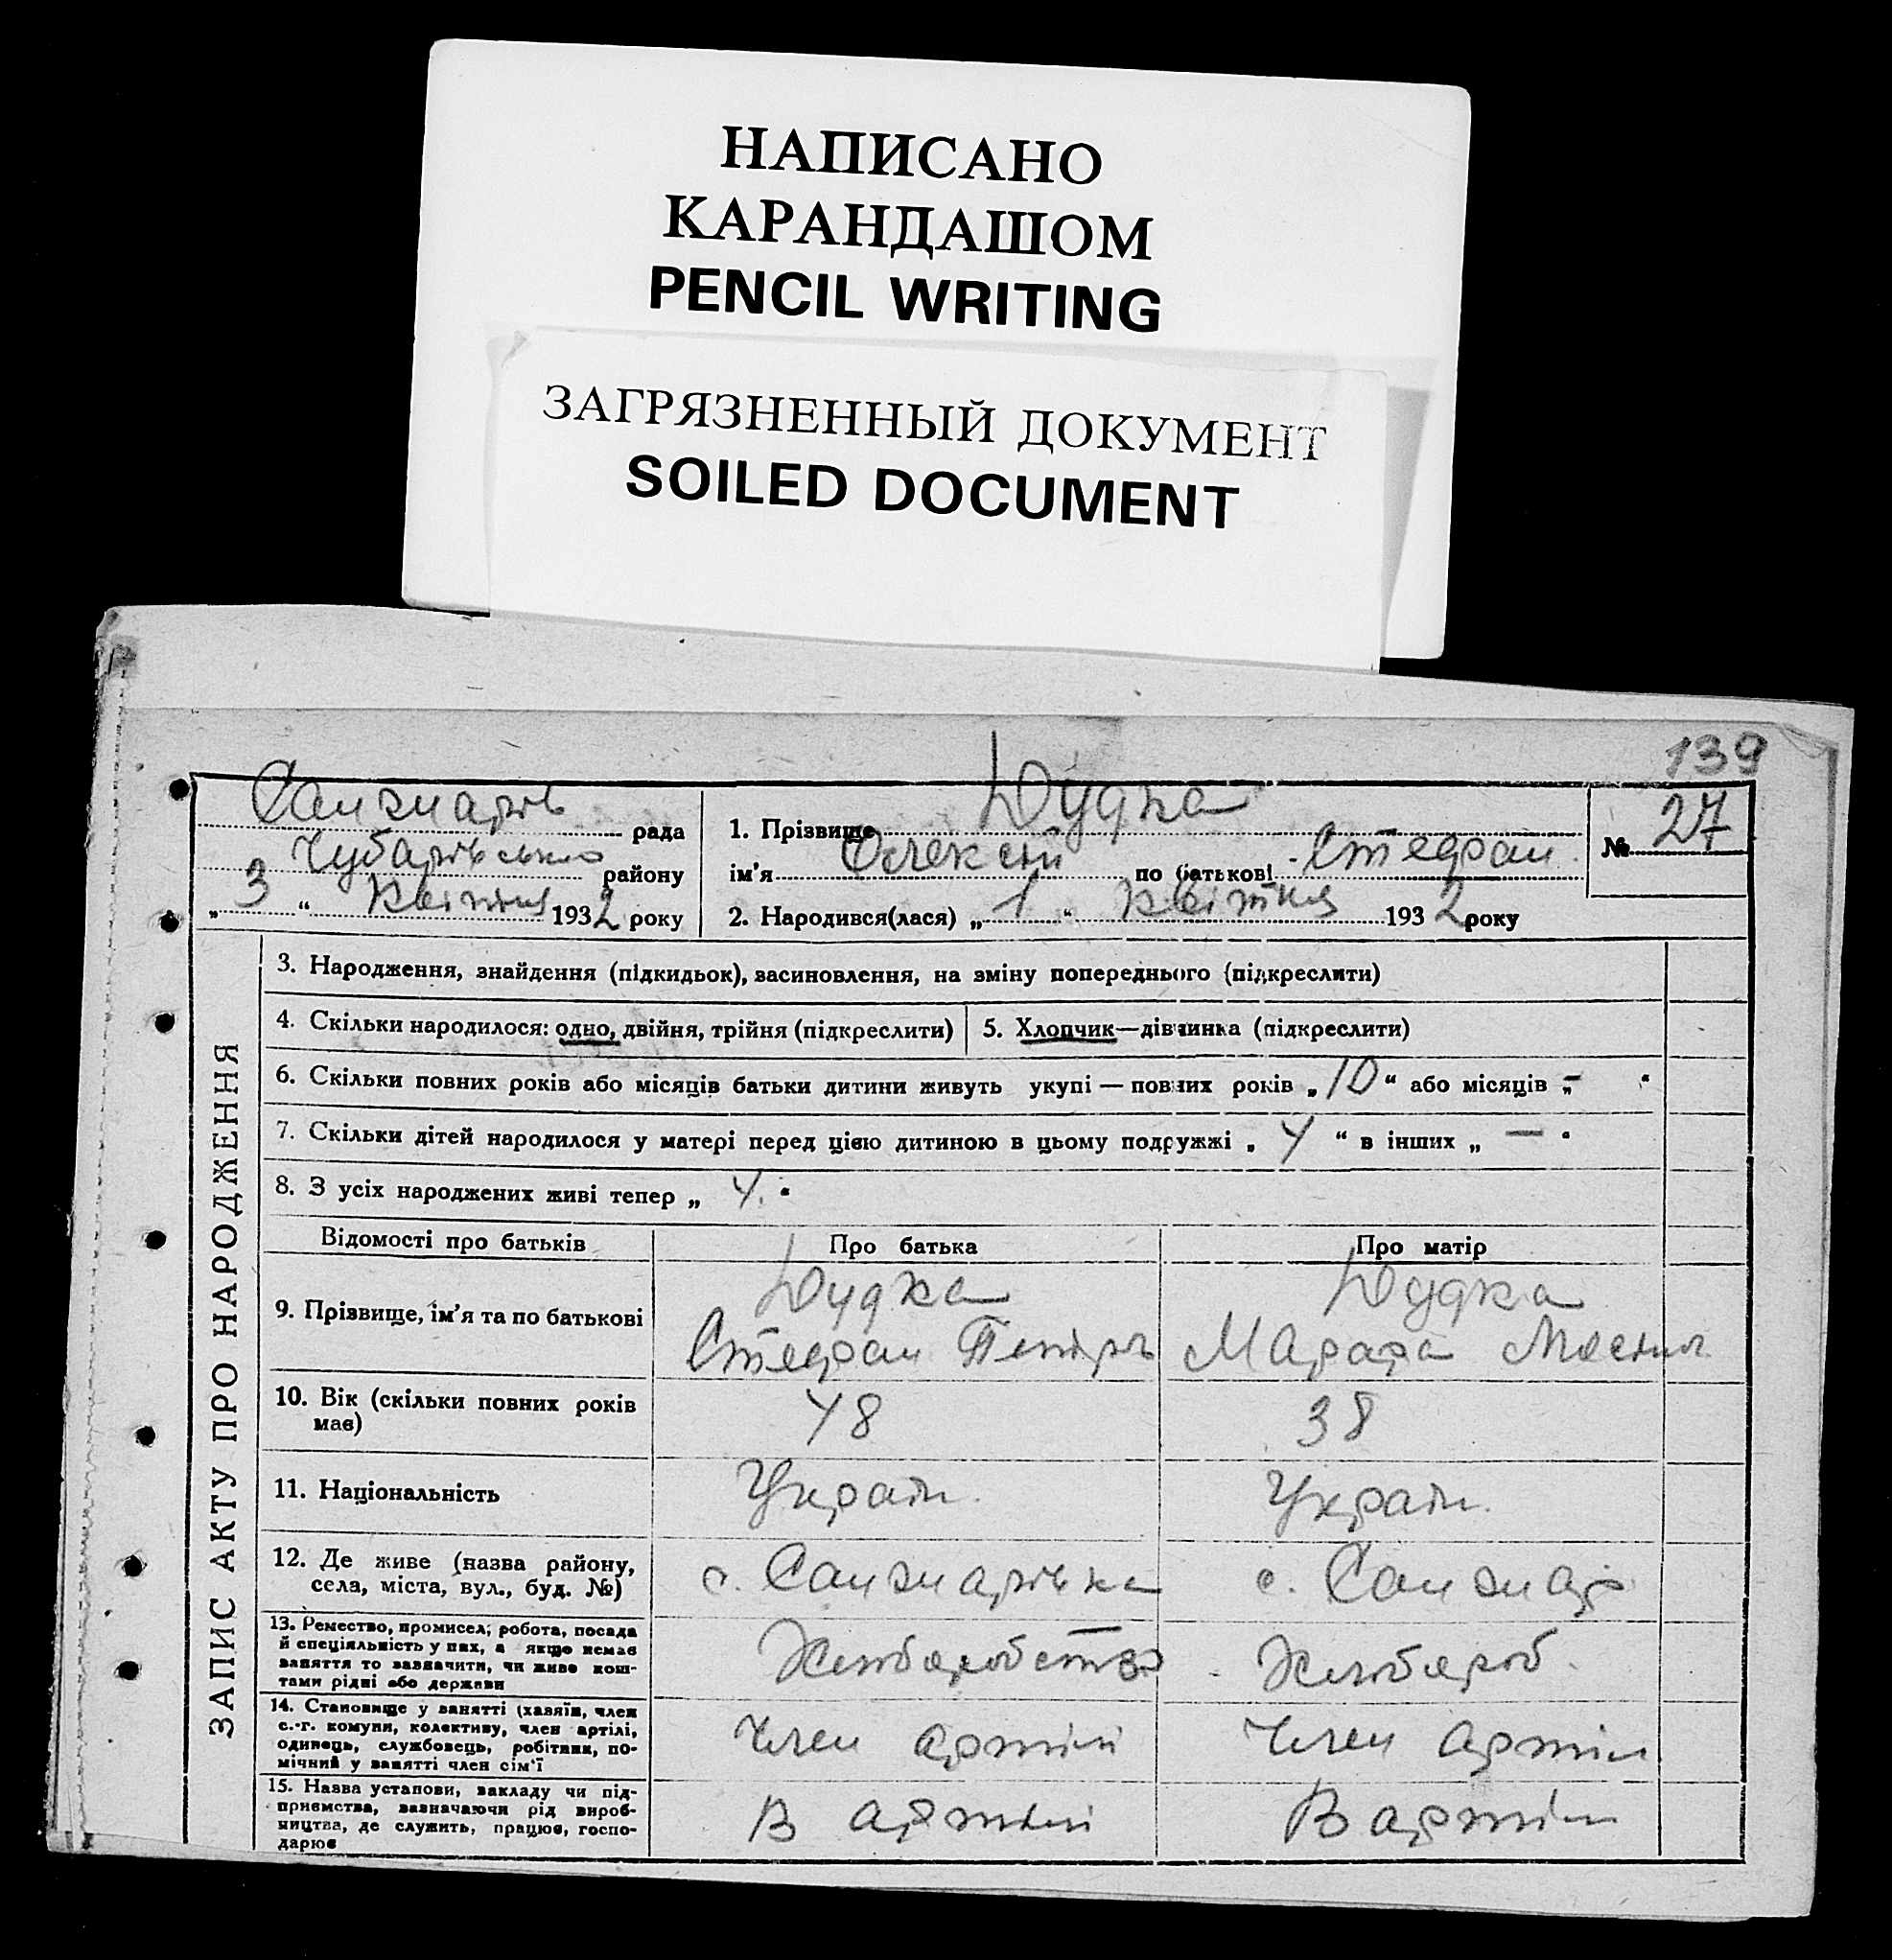 НАПИСАНО
КАРАНДАШОМ
PENCIL WRITING
ЗАГРЯЗНЕННЫЙ ДОКУМЕНТ
SOILED DOCUMENT
139
Санжарів рада
Чубарівського району
„ 3 “ Квітня 1932 року
1. Прізвище Дудка
ім'я Олексій по батькові Стефан.
2. Народився(лася) „ 1 “ Квітня 1932 року
№ 27
ЗАПИС АКТУ ПРО НАРОДЖЕННЯ
3. Народження, знайдення (підкидьок), васиновлення, на зміну попереднього (підкреслити)
4. Скільки народилося: одно, двійня, трійня (підкреслити)
5. Хлопчик—дівчинка (підкреслити)
6. Скільки повних років або місяців батьки дитини живуть укупі — повних років „ 10 “ або місяців „ - “
7. Скільки дітей народилося у матері перед цією дитиною в цьому подружжі „ 4 “ в інших „ — “
8. З усіх народжених живі тепер „ 4. “
Відомості про батьків Про батька Про матір
9. Прізвище, ім'я та по батькові
Дудка
Стефан Петрів
Дудка
10. Вік (скільки повних років
має)
48
38
11. Національність
Україн.
Україн.
12. Де живе (назва району,
села, міста, вул., буд. №)
с. Санжарівка
с. Санжар
13. Ремество, промисел; робота, посада
й спеціяльність у них, а якщо немає
заняття то зазначити, чи живе кош-
тами рідні або держави
Хлібаробство
Хлібароб.
14. Становище у занятті (хазяїн, член
с.-г. комуни, колективу, член артілі,
одинець, службовець, робітник, по-
мічний у занятті член сім'ї
Член артілі
Член артіли
15. Назва установи, закладу чи під-
приємства, зазначаючи рід вироб-
ництва, де служить, працює, госпо-
дарює
В артілі
В артіли